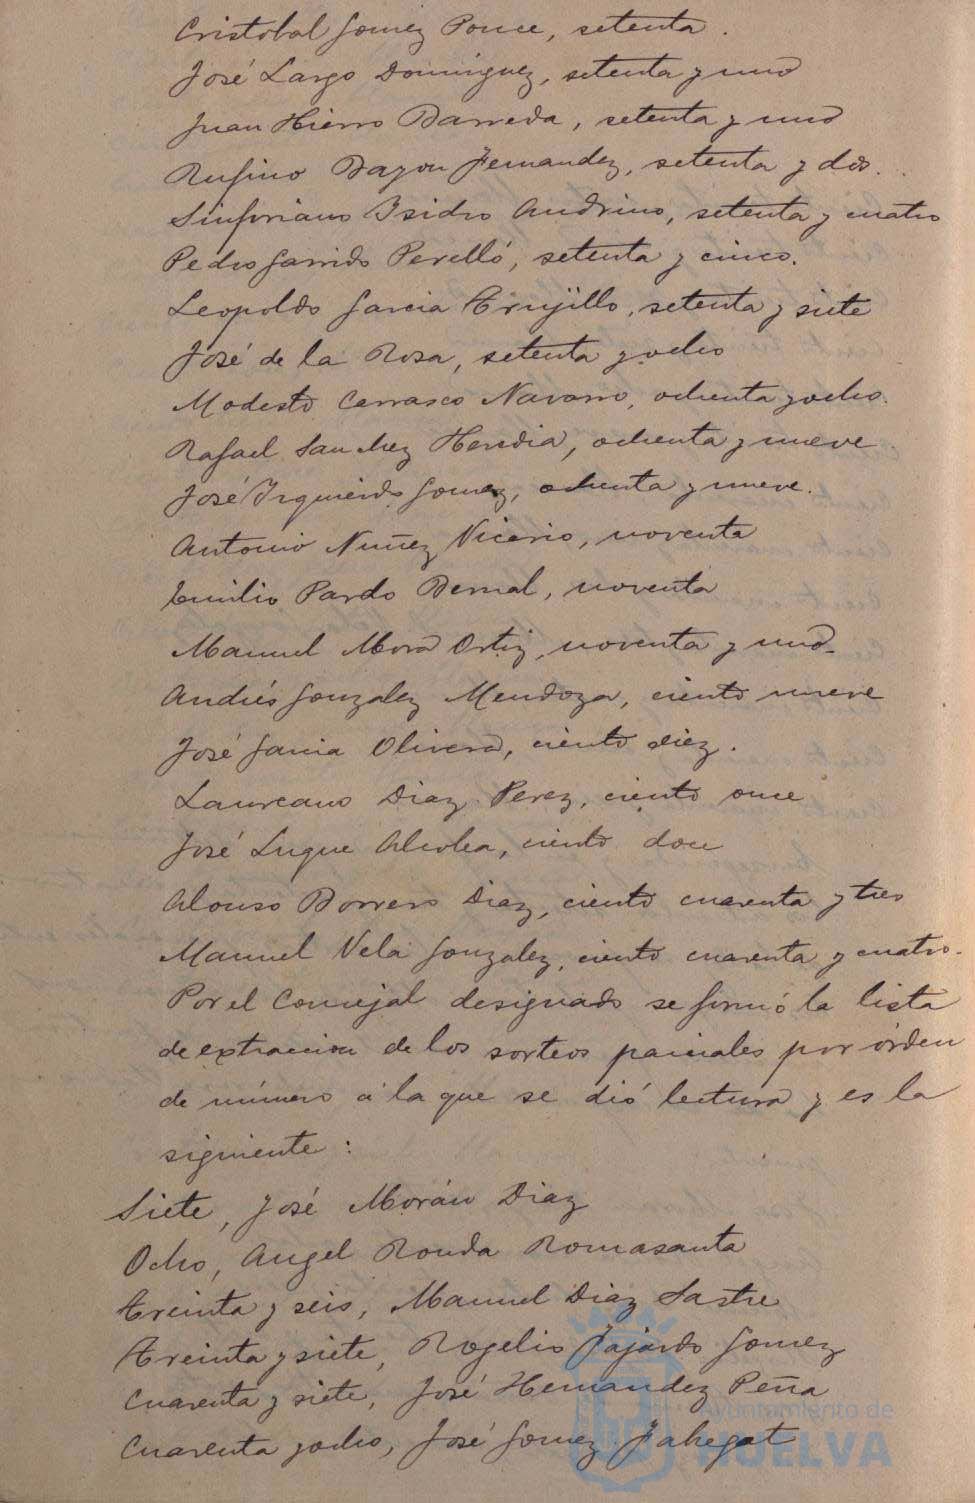 Cristobal Gomez Ponce, setenta.
José Largo Dominguez, setenta y uno
Juan Hierro Barreda, setenta y uno
Rufino Bayon Fernandez, setenta y dos.
Sinforiano Isidro Andrino, setenta y cuatro
Pedro Garrido Perelló, setenta y cinco.
Leopoldo Garcia Trujillo, setenta y siete
José de la Rosa, setenta y ocho
Modesto Carrasco Navarro, ochenta y ocho.
Rafael Sanchez Heredia, ochenta y nueve
José Izquierdo Gomez, ochenta y nueve.
Antonio Nuñez Vicario, noventa
Emilio Pardo Bernal, noventa
Manuel Mora Ortiz, noventa y uno.
Andrés Gonzalez Mendoza, ciento nueve
José Garcia Olivera, ciento diez.
Laureano Diaz Perez, ciento once
José Luque Alcolea, ciento doce
Alonso Borrero Diaz, ciento cuarenta y tres
Manuel Vela Gonzalez, ciento cuarenta y cuatro.
Por el Concejal designado se formó la lista
de extraccion de los sorteos parciales por órden
de número a la que se dió lectura y es la
siguiente:
Siete, José Morán Diaz
Ocho, Angel Ronda Romasanta
Treinta y seis, Manuel Diaz Sastre
Treinta y siete, Rogelio Fajardo Gomez
Cuarenta y siete, José Hernandez Peña
Cuarenta y ocho, José Gomez
Ayuntamiento de
HUELVA